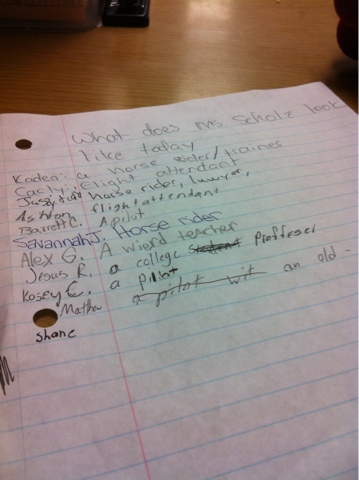 What does Mrs Scholz look
like today
Kaden: a horse rider/trainer
Caely: flight attendant
horse rider, lawyer,
Ashton flight attendant
Barrett C. A pilot
Savannah J. Horse rider
Alex G. A wierd teacher
Jesus R. a college Proffeser
Kosey C. a pilot
Matha a pilot wit an old -
shane